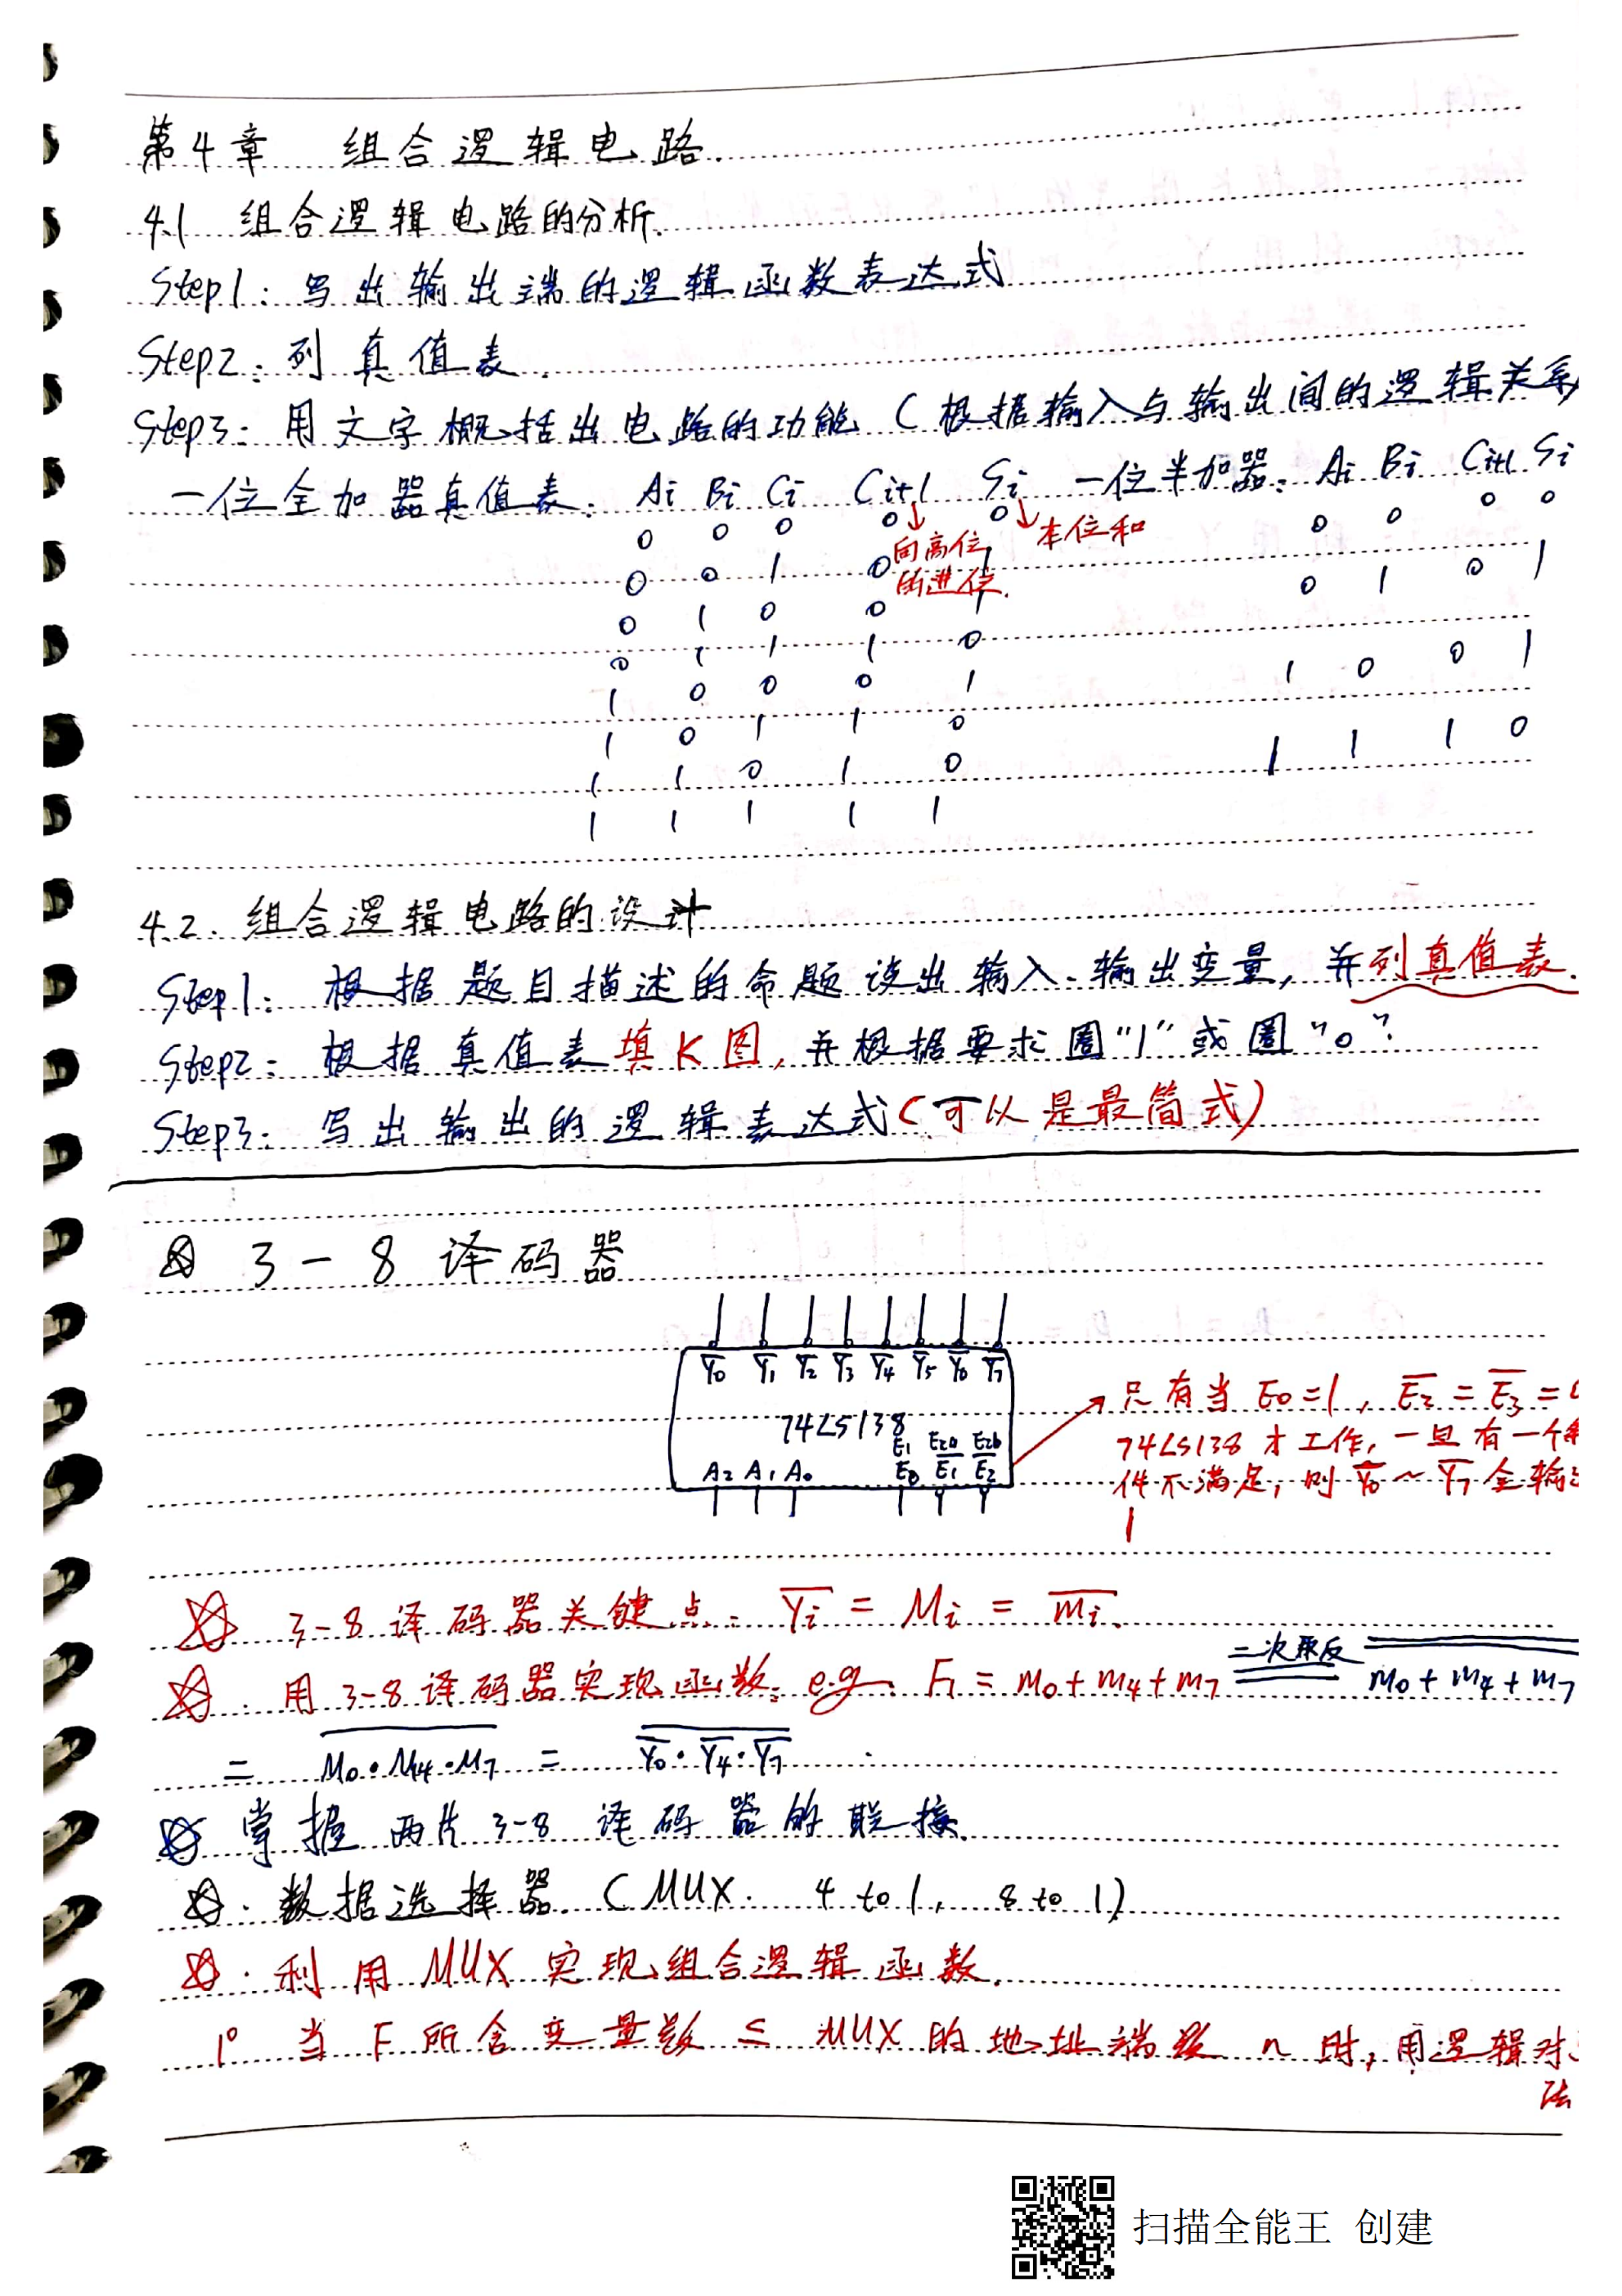 第4章 组合逻辑电路.
4.1 组合逻辑电路的分析.
Step1: 写出输出端的逻辑函数表达式
Step2: 列真值表.
Step3: 用文字概括出电路的功能 (根据输入与输出间的逻辑关系
一位全加器真值表: Ai Bi Ci Ci+1 Si 一位半加器: Ai Bi Ci+1 Si
0 0 0 0 0 0 0 0 0
向高位的进位.
本位和
0 0 1 0 1 0 1 0 1
0 1 0 0 1
0 1 1 1 0
1 0 0 0 1 1 0 0 1
1 0 1 1 0
1 1 0 1 0 1 1 1 0
1 1 1 1 1
4.2. 组合逻辑电路的设计
Step1: 根据题目描述的命题设出输入、输出变量, 并列真值表.
Step2: 根据真值表填K图, 并根据要求圈"1"或圈"0".
Step3: 写出输出的逻辑表达式(可以是最简式)
3-8译码器
Y̅0 Y̅1 Y̅2 Y̅3 Y̅4 Y̅5 Y̅6 Y̅7
74LS138
E1 E2a E2b
A2 A1 A0 E0 E̅1 E̅2
只有当 E0=1, E̅2=E̅3=
74LS138才工作, 一旦有一个
件不满足, 则 Y̅0~Y̅7 全输
1
3-8译码器关键点: Y̅i = Mi = m̅i.
用3-8译码器实现函数: e.g. F1 = m0+m4+m7 二次取反 m0+m4+m7
= M0·M4·M7 = Y̅0·Y̅4·Y̅7
掌握两片3-8译码器的联接.
数据选择器. (MUX. 4 to 1, 8 to 1)
利用MUX实现组合逻辑函数.
1° 当F所含变量数 ≤ MUX的地址端数 n 时, 用逻辑对
法
扫描全能王 创建